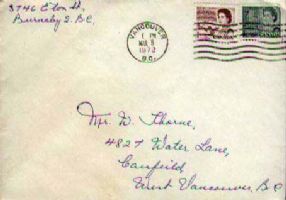 3746 Eton St,
Burnaby 2. B.C.
VANCOUVER
1 PM
MAR 3
1972
B.C.
Mr. W. Thorne,
4827 Water Lane,
West Vancouver, B.C